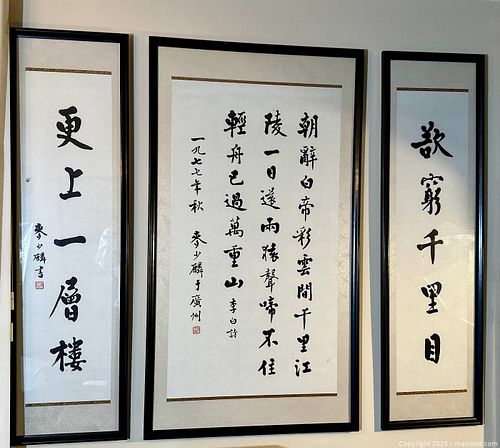 欲窮千里目
朝辭白帝彩雲間千里江
陵一日還兩猿聲啼不住
輕舟已過萬重山 李白詩
一九七七年秋 麥少麟于廣州
更上一層樓
麥少麟書
Copyright 2025 - maxsold.com